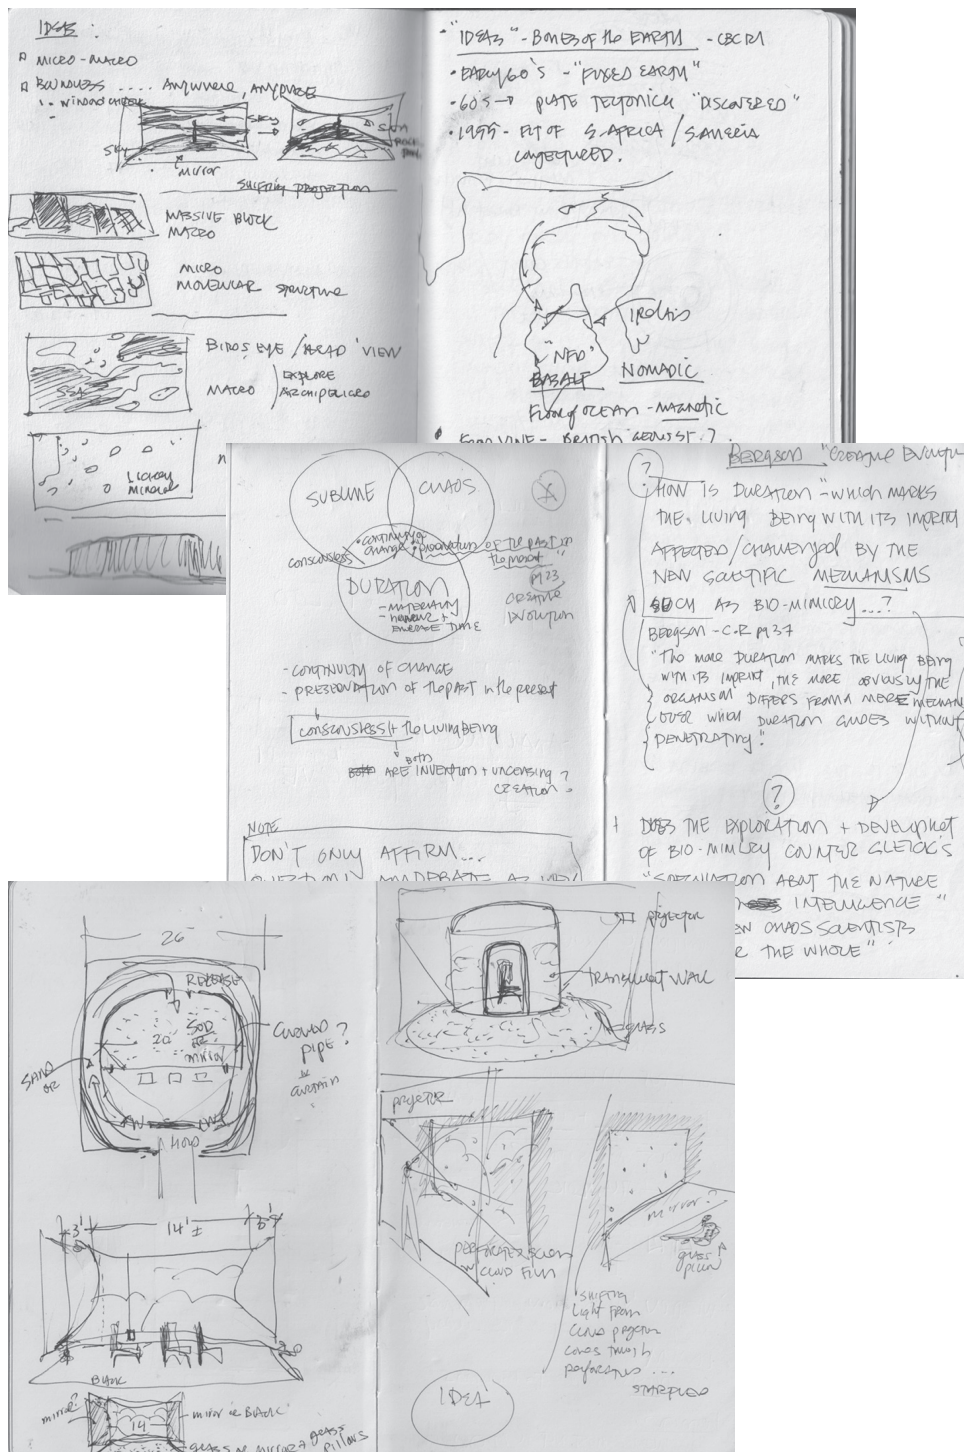 IDEAS :
MICRO - MACRO
BOUNDLESS .... ANYWHERE, ANYPLACE
SKY
SKY
MIRROR
SHIFTING PROJECTION
MASSIVE BLOCK
MACRO
MICRO
MOLECULAR STRUCTURE
BIRDS EYE / AERIAL VIEW
SEA
MACRO / EXPLORE
ARCHIPELIGRO
MINERAL
"IDEAS" - BONES of the EARTH - CBC R1
• EARLY 60'S - "FIXED EARTH"
• 60'S → PLATE TECTONICK "DISCOVERED"
FIT OF S. AFRICA / S. AMERIA
CONJECTURED.
BASALT
NOMADIC
FLOOR of OCEAN - MAGNETIC
SUBLIME
CHAOS
• CONTINUITY of
CHANGE • PRESERVATION OF THE PAST IN
the present"
CONSCIOUSNESS
pg 23
CREATIVE
EVOLUTION
DURATION
- MATERIALITY
TIME
- CONTINUITY OF CHANGE
- PRESERVATION OF the PAST in the present
CONSCIOUSNESS + the LIVING BEING
BOTH
ARE INVENTION + UNCEASING ?
CREATION
NOTE
DON'T ONLY AFFIRM...
BERGSON "CREATIVE EVOLUTI
?
HOW IS DURATION - WHICH MARKS
THE LIVING BEING WITH ITS IMPRINT
AFFECTED / CHALLENGED BY THE
NEW SCIENTIFIC MECHANISMS
SUCH AS BIO-MIMICRY...?
BERGSON - C.R pg 37
"The more DURATION MARKS THE LIVING BEING
WITH ITS IMPRINT, THE MORE OBVIOUSLY THE
ORGANISM DIFFERS FROM A MERE MECHAN
OVER WHICH DURATION GLIDES WITHOUT
PENETRATING."
?
DOES THE EXPLORATION + DEVELOPMENT
OF BIO-MIMICRY COUNTER GLEICK'S
"SPECULATION ABOUT THE NATURE
INTELLIGENCE"
EW CHAOS SCIENTISTS
R THE WHOLE"
26'
RELEASE
20'
SOD
OR
mirror
CURVED
PIPE ?
CURTAIN
SAND
OR
3'
14' ±
3'
BLACK
mirror?
14
mirror or BLACK
GLASS or MIRROR? GLASS
PILLOWS
projector
TRANSLUCENT WALL
GLASS
projector
PERFORATED SCREEN
w CLOUD FILM
mirror?
glass
pillow
SHIFTING
Light from
CLOUD projector
comes through
perforations ....
IDEA